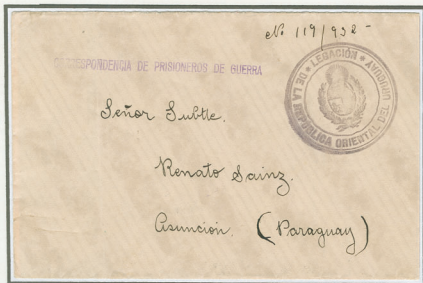 Nº 119/932-
CORRESPONDENCIA DE PRISIONEROS DE GUERRA
LEGACIÓN DE LA REPÚBLICA ORIENTAL DEL URUGUAY
Señor Subtte.
Renato Sainz.
Asunción. (Paraguay)